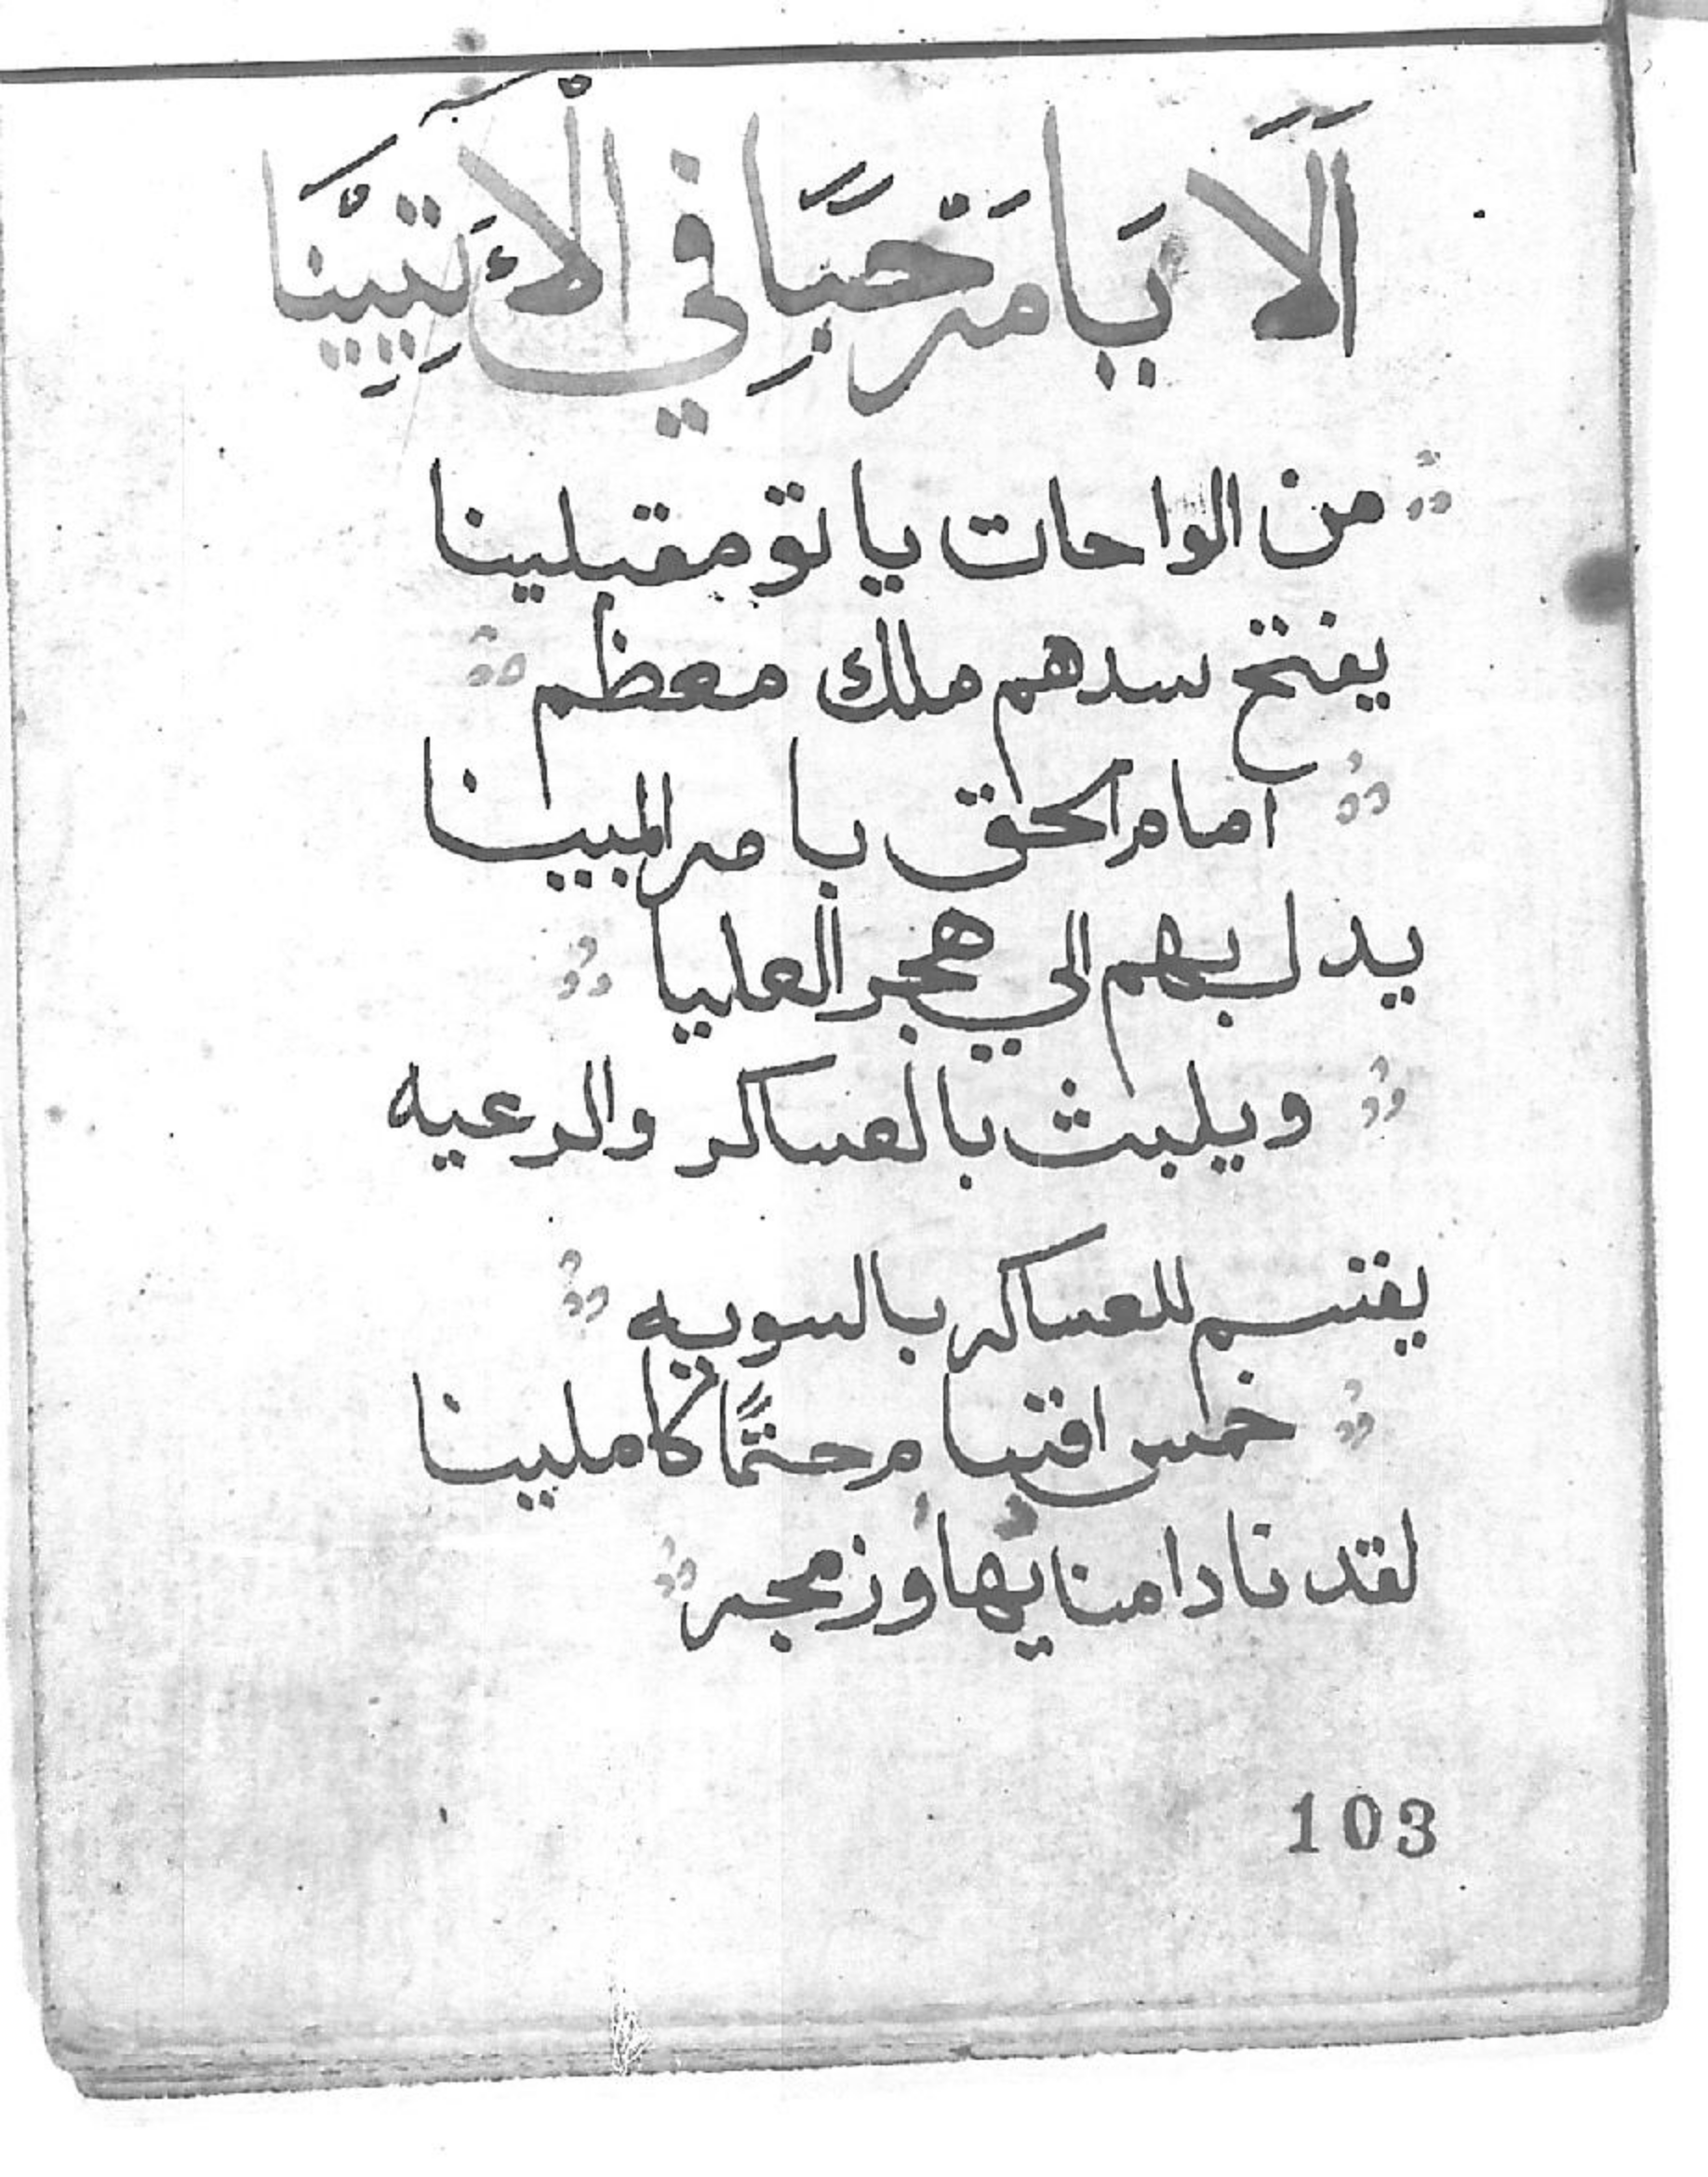 اَلَا يَا مَرْحَبًا في الْآتِيِّنَا
من الواحات ياتو مقبلينا
يفتح سدهم ملك معظم
امام الحق بامر المبينا
يدل بهم الي هجر العليا
ويلبث بالعساكر والرعيه
يقسم للعساكر بالسويه
خمس حتمًا كاملينا
لقد نادا منا وزمجر
103